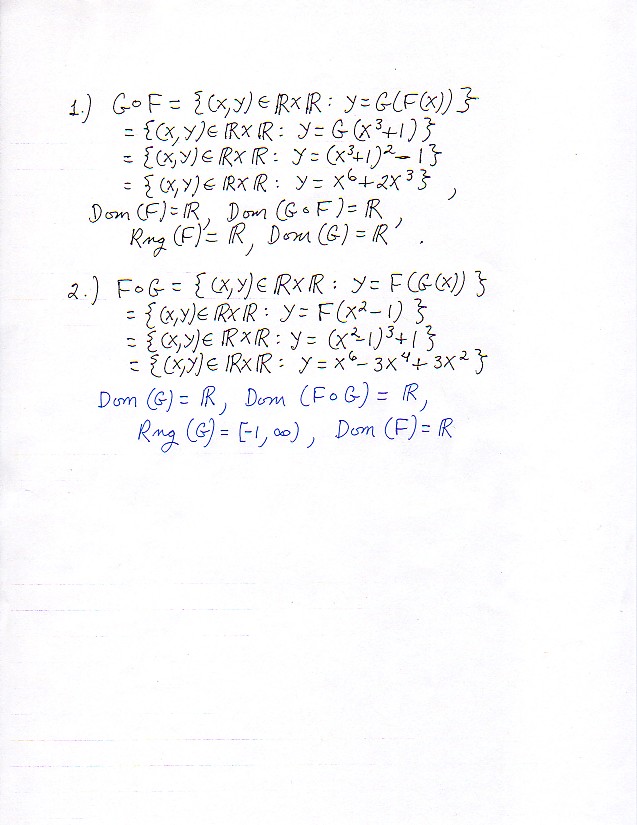 1.) G∘F = {(x,y) ∈ ℝ×ℝ : y = G(F(x))}
= {(x,y) ∈ ℝ×ℝ : y = G(x³+1)}
= {(x,y) ∈ ℝ×ℝ : y = (x³+1)² - 1}
= {(x,y) ∈ ℝ×ℝ : y = x⁶ + 2x³} ,
Dom (F) = ℝ, Dom (G∘F) = ℝ,
Rng (F) = ℝ, Dom (G) = ℝ .
2.) F∘G = {(x,y) ∈ ℝ×ℝ : y = F(G(x))}
= {(x,y) ∈ ℝ×ℝ : y = F(x²-1)}
= {(x,y) ∈ ℝ×ℝ : y = (x²-1)³+1}
= {(x,y) ∈ ℝ×ℝ : y = x⁶ - 3x⁴ + 3x²}
Dom (G) = ℝ, Dom (F∘G) = ℝ,
Rng (G) = [-1, ∞), Dom (F) = ℝ